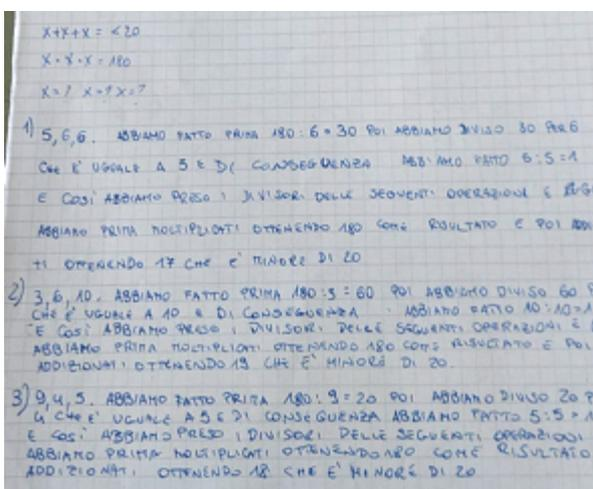 X+X+X = <20
X · X · X = 180
X=? X=? X=?
1) 5,6,6. ABBIAMO FATTO PRIMA 180:6=30 POI ABBIAMO DIVISO 30 PER 6
CHE E' UGUALE A 5 E DI CONSEGUENZA ABBIAMO FATTO 5:5=1
E COSÌ ABBIAMO PRESO I DIVISORI DELLE SEGUENTI OPERAZIONI E
ABBIAMO PRIMA MOLTIPLICATI OTTENENDO 180 COME RISULTATO E POI
TI OTTENENDO 17 CHE E' MINORE DI 20
2) 3,6,10. ABBIAMO FATTO PRIMA 180:3=60 POI ABBIAMO DIVISO 60
CHE E' UGUALE A 10 E DI CONSEGUENZA ABBIAMO FATTO 10:10=1
E COSÌ ABBIAMO PRESO I DIVISORI DELLE SEGUENTI OPERAZIONI E
ABBIAMO PRIMA MOLTIPLICATI OTTENENDO 180 COME RISULTATO E POI
ADDIZIONATI OTTENENDO 19 CHE E' MINORE DI 20.
3) 9,4,5. ABBIAMO FATTO PRIMA 180:9=20 POI ABBIAMO DIVISO 20
4 CHE E' UGUALE A 5 E DI CONSEGUENZA ABBIAMO FATTO 5:5=1
E COSÌ ABBIAMO PRESO I DIVISORI DELLE SEGUENTI OPERAZIONI
ABBIAMO PRIMA MOLTIPLICATI OTTENENDO 180 COME RISULTATO
ADDIZIONATI OTTENENDO 18 CHE E' MINORE DI 20